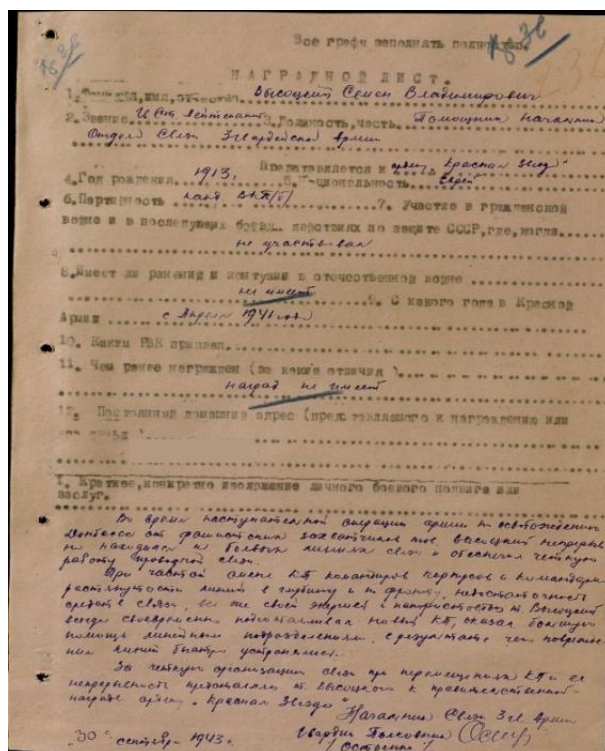 Все графы заполнять полностью.
НАГРАДНОЙ ЛИСТ.
1. Фамилия, имя, отчество Высоцкий Семен Владимирович
2. Звание Ст. лейтенант 3. Должность, часть. Помощник Начальника
Отдела Связи 3 Гвардейской Армии
Представляется к ордену "Красная Звезда"
4. Год рождения 1913. 5. Национальность Еврей
6. Партийность канд. ВКП(б) 7. Участие в гражданской
войне и в последующих боевых действиях по защите СССР, где, когда
не участвовал
8. Имеет ли ранения и контузии в отечественной войне
не имеет 9. С какого года в Красной
Армии с Апреля 1941 года
10. Каким РВК призван
11. Чем ранее награжден (за какие отличия)
наград не имеет
12. Постоянный домашний адрес (представляемого к награждению или
его семьи)
1. Краткое, конкретно изложение личного боевого подвига или
заслуг.
Во время наступательной операции армии по освобождению
Донбасса от фашистских захватчиков тов. Высоцкий непрерыв
но находился на боевых линиях связи и обеспечил четкую
работу проводной связи.
При частой смене КП командиров корпусов и командарма
растянутости линий в глубину и по фронту, недостаточность
средств связи, все же своей энергией и напористостью т. Высоцкий
всегда своевременно подготавливал новый КП, оказал большую
помощь линейным подразделениям, в результате чего поврежде
ния линий быстро устранялись.
За четкую организацию связи при перемещениях КП и ее
непрерывность представляю т. Высоцкого к правительственной
награде ордену "Красная Звезда"
Начальник Связи 3 гв. Армии
Гвардии Полковник
"30" сентября 1943 г.